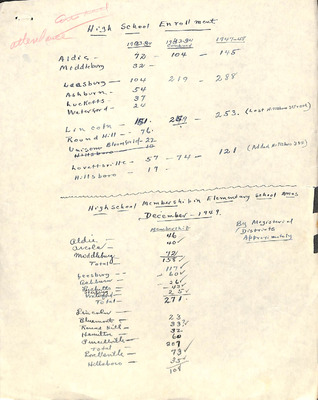 attendance
High School Enrollment
1933-34 1933-34 Combined 1947-48
Aldie - 72 - 104 - 145
Middleburg 32 -
Leesburg - 104 219 - 288
Ashburn - 54
Lucketts - 37
Waterford - 24
Lincoln - 151. 259 - 253.
Round Hill - 76.
Unison Bloomfield - 22
Hillsboro - 10
Lovettsville - 57 - 76 - 121
Hillsboro - 19 -
High School Membership in Elementary School Areas
December - 1949.
Membership
By Magisterial
Districts
Approximately
Aldie - 46
Arcola - 40
Middleburg - 72
Total - 158
Leesburg - - 117
Ashburn - 60
Lucketts - 26
Total - 271
Lincoln - 23
Bluemont - 33
Round Hill - 32
Hamilton - 60
Purcellville - 207
Total
Lovettsville - 73
Hillsboro - 35
108